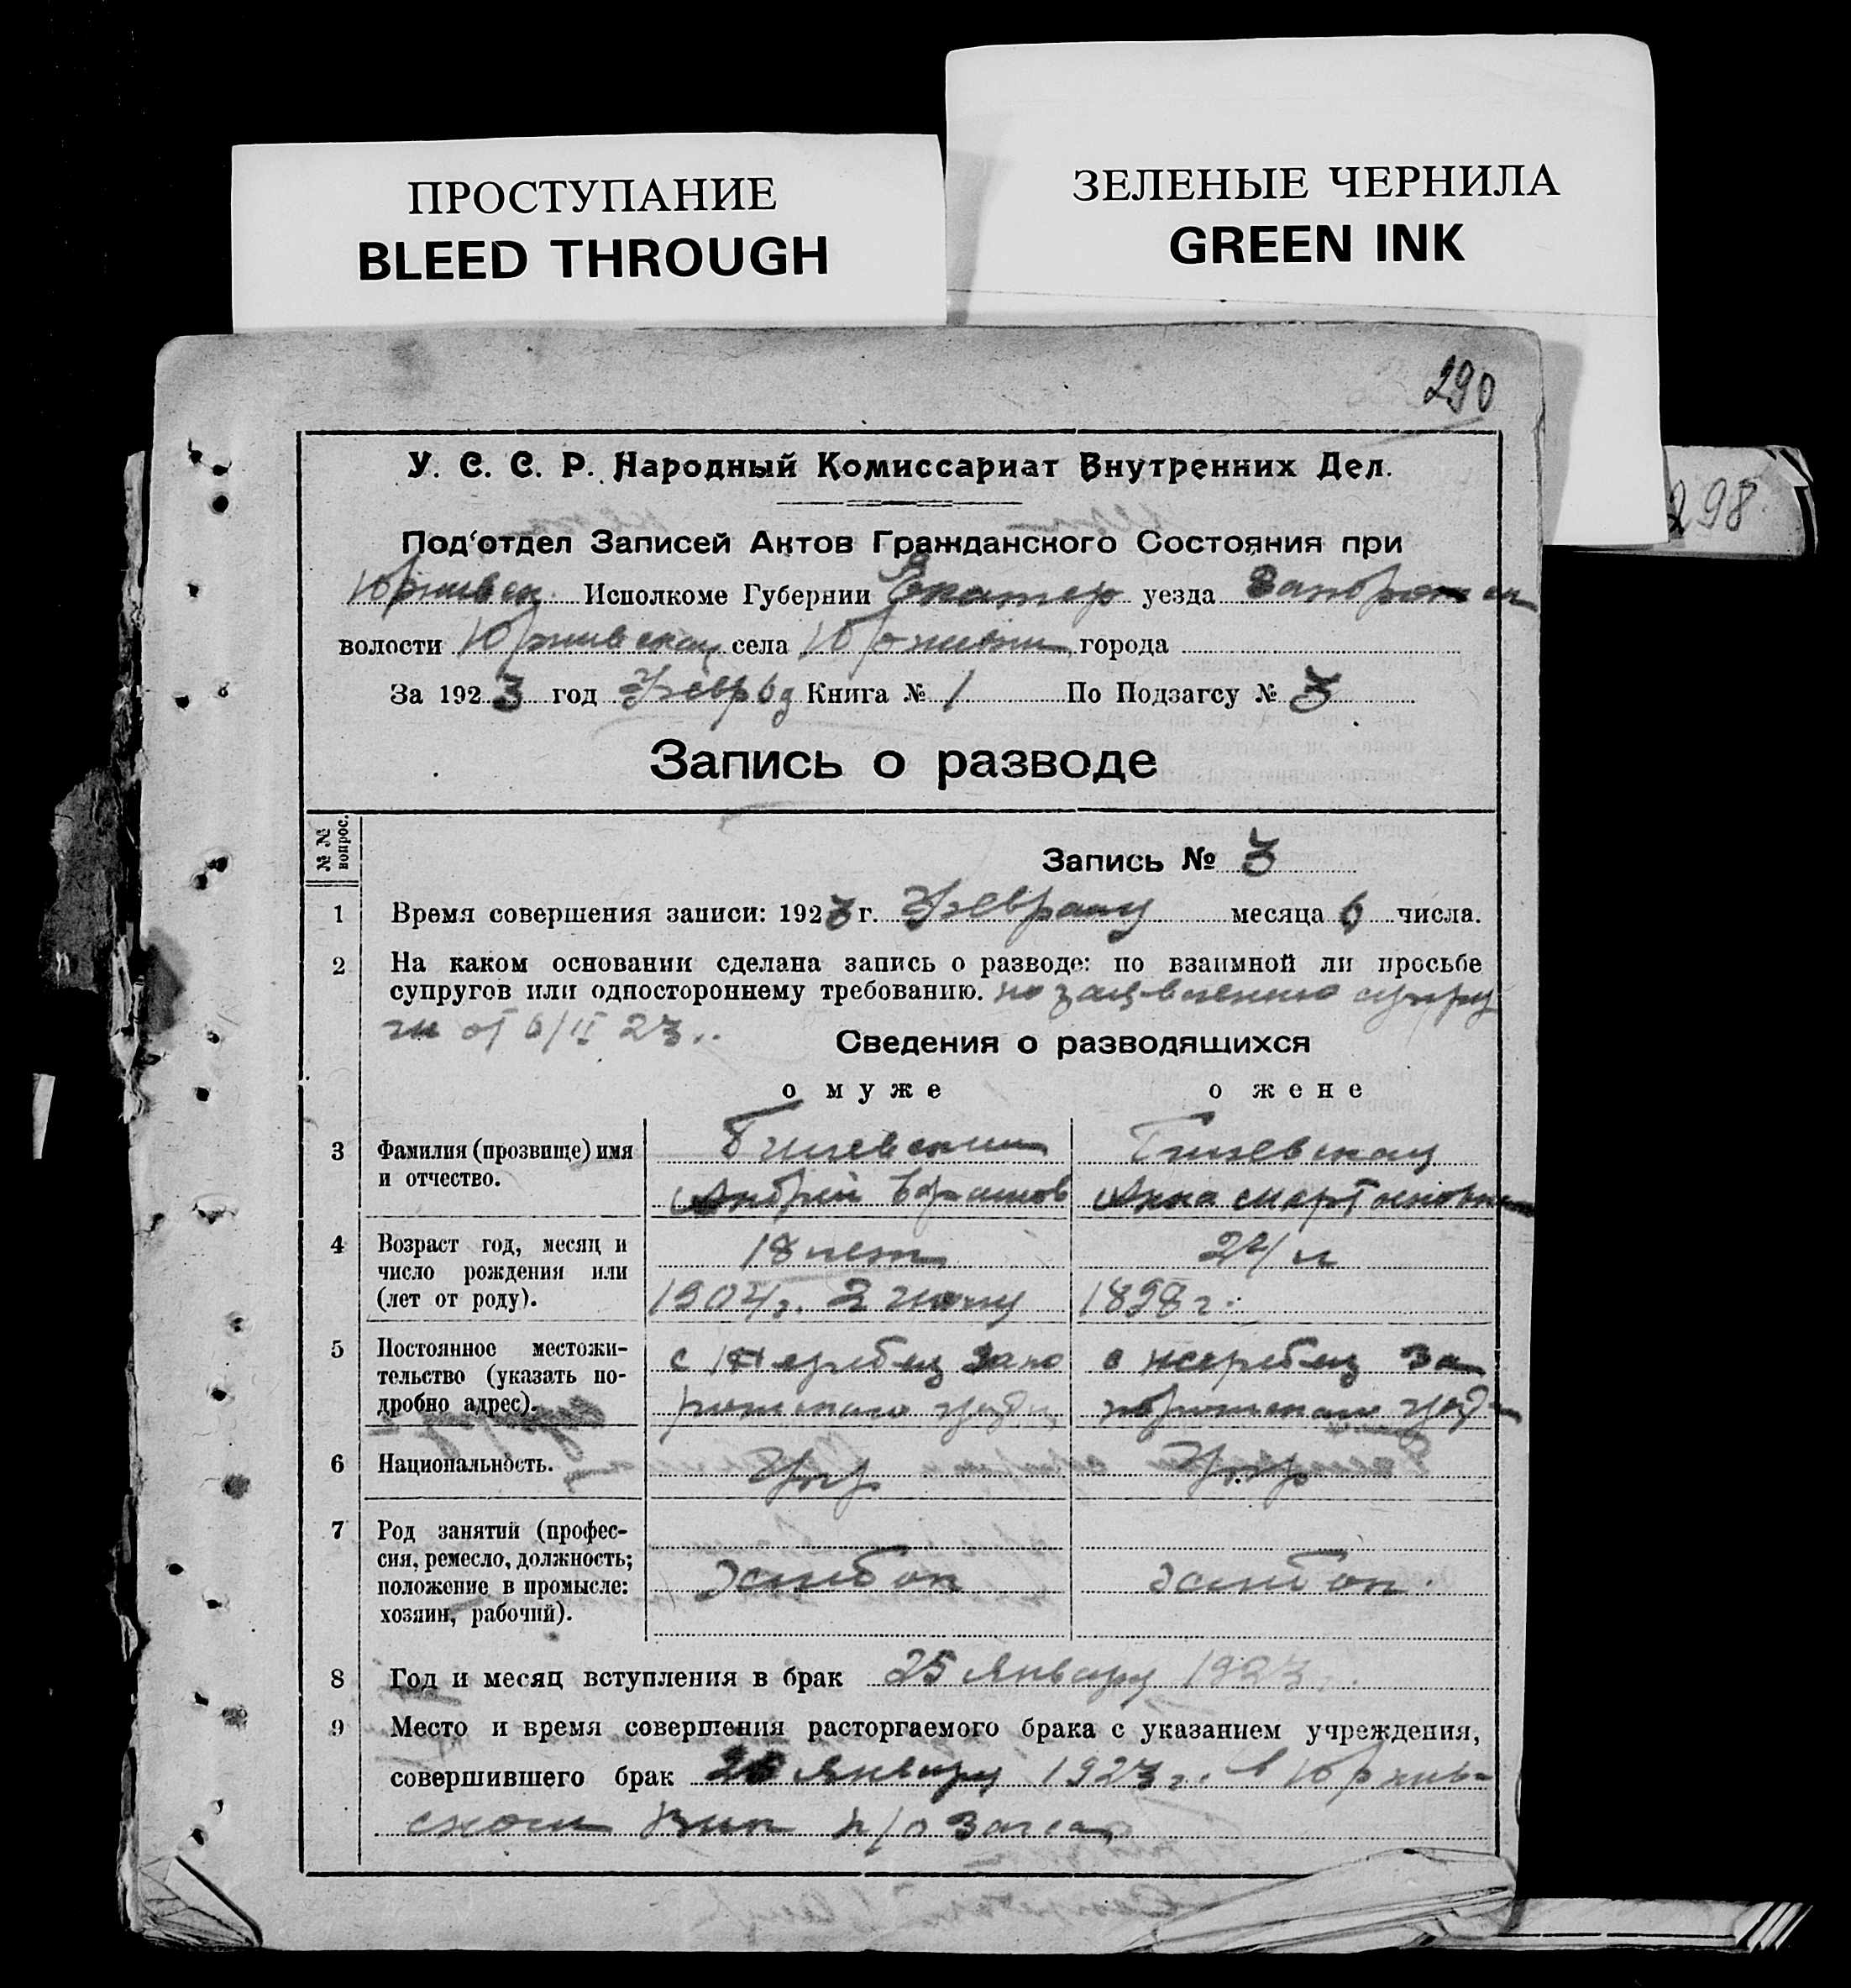 ПРОСТУПАНИЕ
BLEED THROUGH
ЗЕЛЕНЫЕ ЧЕРНИЛА
GREEN INK
290
298
У. С. С. Р. Народный Комиссариат Внутренних Дел.
Под'отдел Записей Актов Гражданского Состояния при
Исполкоме Губернии Екатер уезда Запорожск
волости села города
За 1923 год Февр 6д Книга № 1 По Подзагсу № 3
Запись о разводе
№№ вопрос.
Запись № 3
1 Время совершения записи: 1923 г. Февраля месяца 6 числа.
2 На каком основании сделана запись о разводе: по взаимной ли просьбе
супругов или одностороннему требованию. по заявлению супру
ги от 6/II 23..
Сведения о разводящихся
о муже о жене
3 Фамилия (прозвище) имя
и отчество.
Андрей
Анна Мартыновна
4 Возраст год, месяц и
число рождения или
(лет от роду).
18 лет 24 л
1904г. 1898г.
5 Постоянное местожи-
тельство (указать по-
дробно адрес).
с Жеребец Запо
рожского уезда
с Жеребец За
порожского уезда
6 Национальность. Укр Укр
7 Род занятий (профес-
сия, ремесло, должность;
положение в промысле:
хозяин, рабочий).
хлебоп хлебоп.
8 Год и месяц вступления в брак 25 Января 1923г.
9 Место и время совершения расторгаемого брака с указанием учреждения,
совершившего брак Января 1923г. в
ском Вик п/о Загса